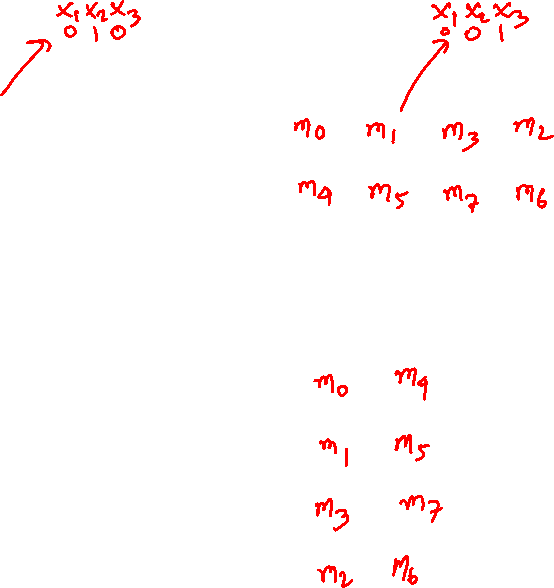 x₁ x₂ x₃
0 1 0
x₁ x₂ x₃
0 0 1
m₀ m₁ m₃ m₂
m₄ m₅ m₇ m₆
m₀ m₄
m₁ m₅
m₃ m₇
m₂ m₆